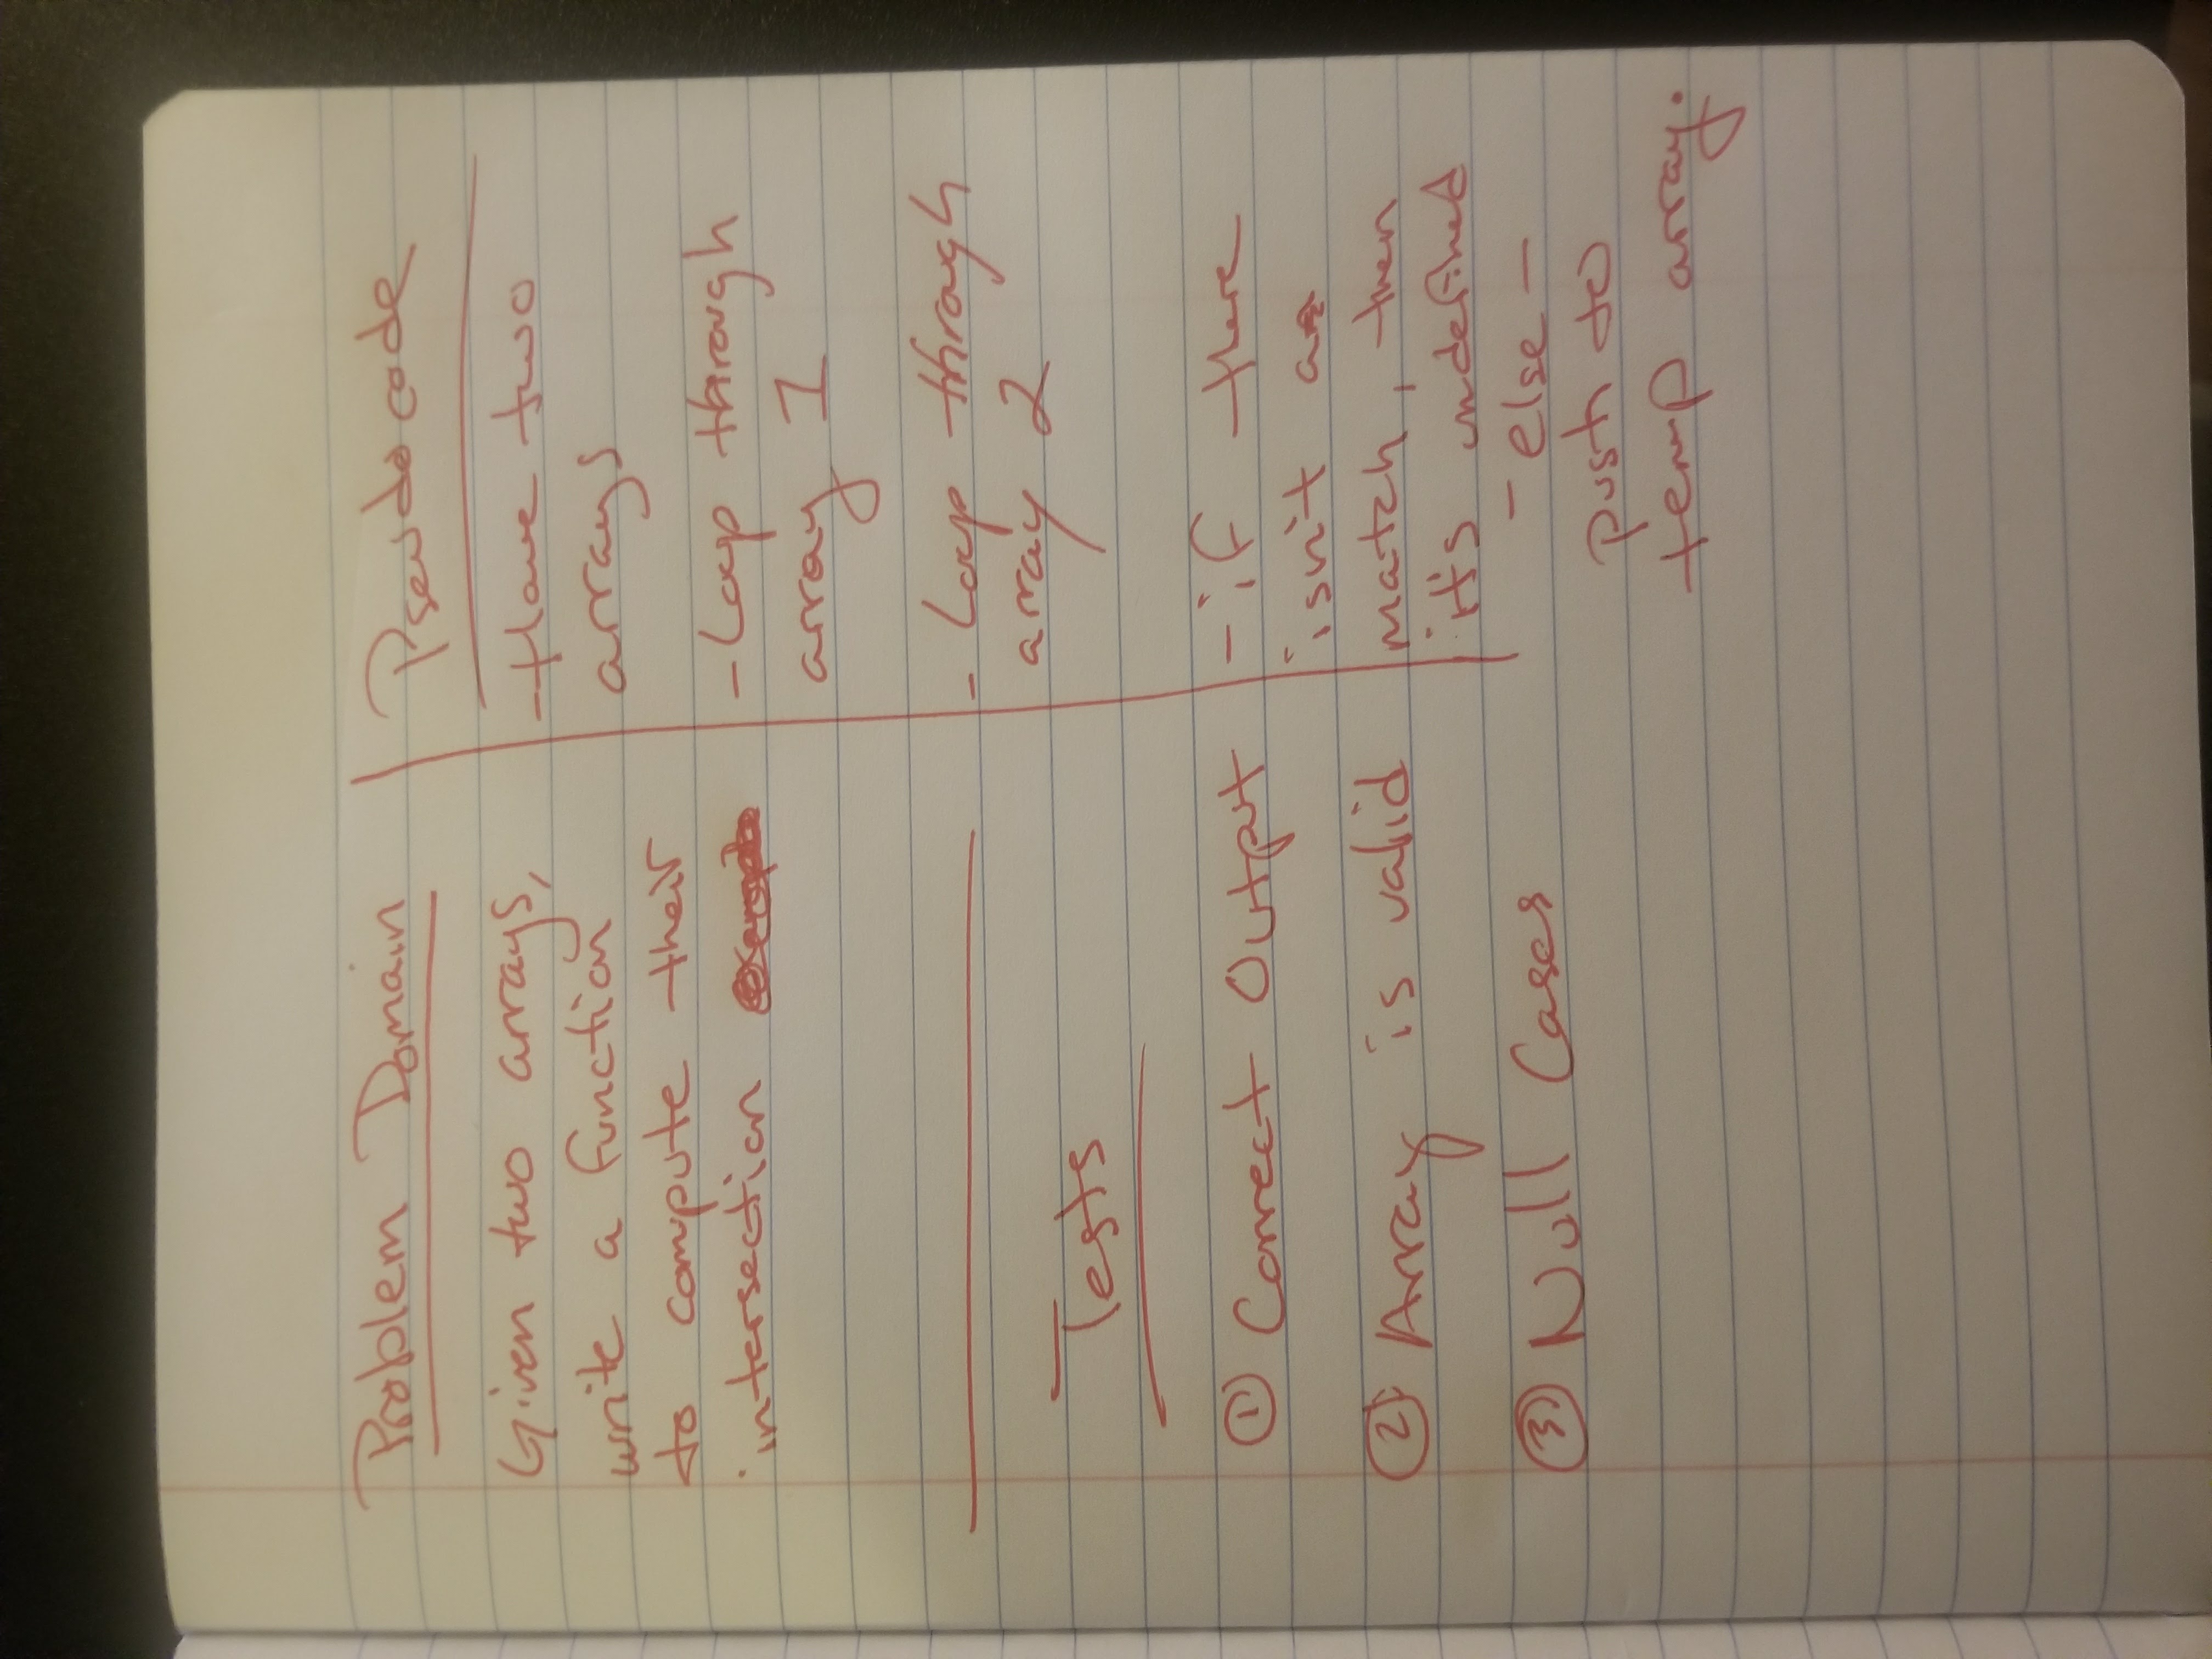 Problem Domain
Given two arrays,
write a function
to compute their
intersection
Tests
① Correct Output
② Array is valid
③ Null Cases
Pseudo code
- Have two
arrays
- Loop through
array 1
- Loop through
array 2
- if there
isn't a
match, then
it's undefined
- else -
push to
temp array.